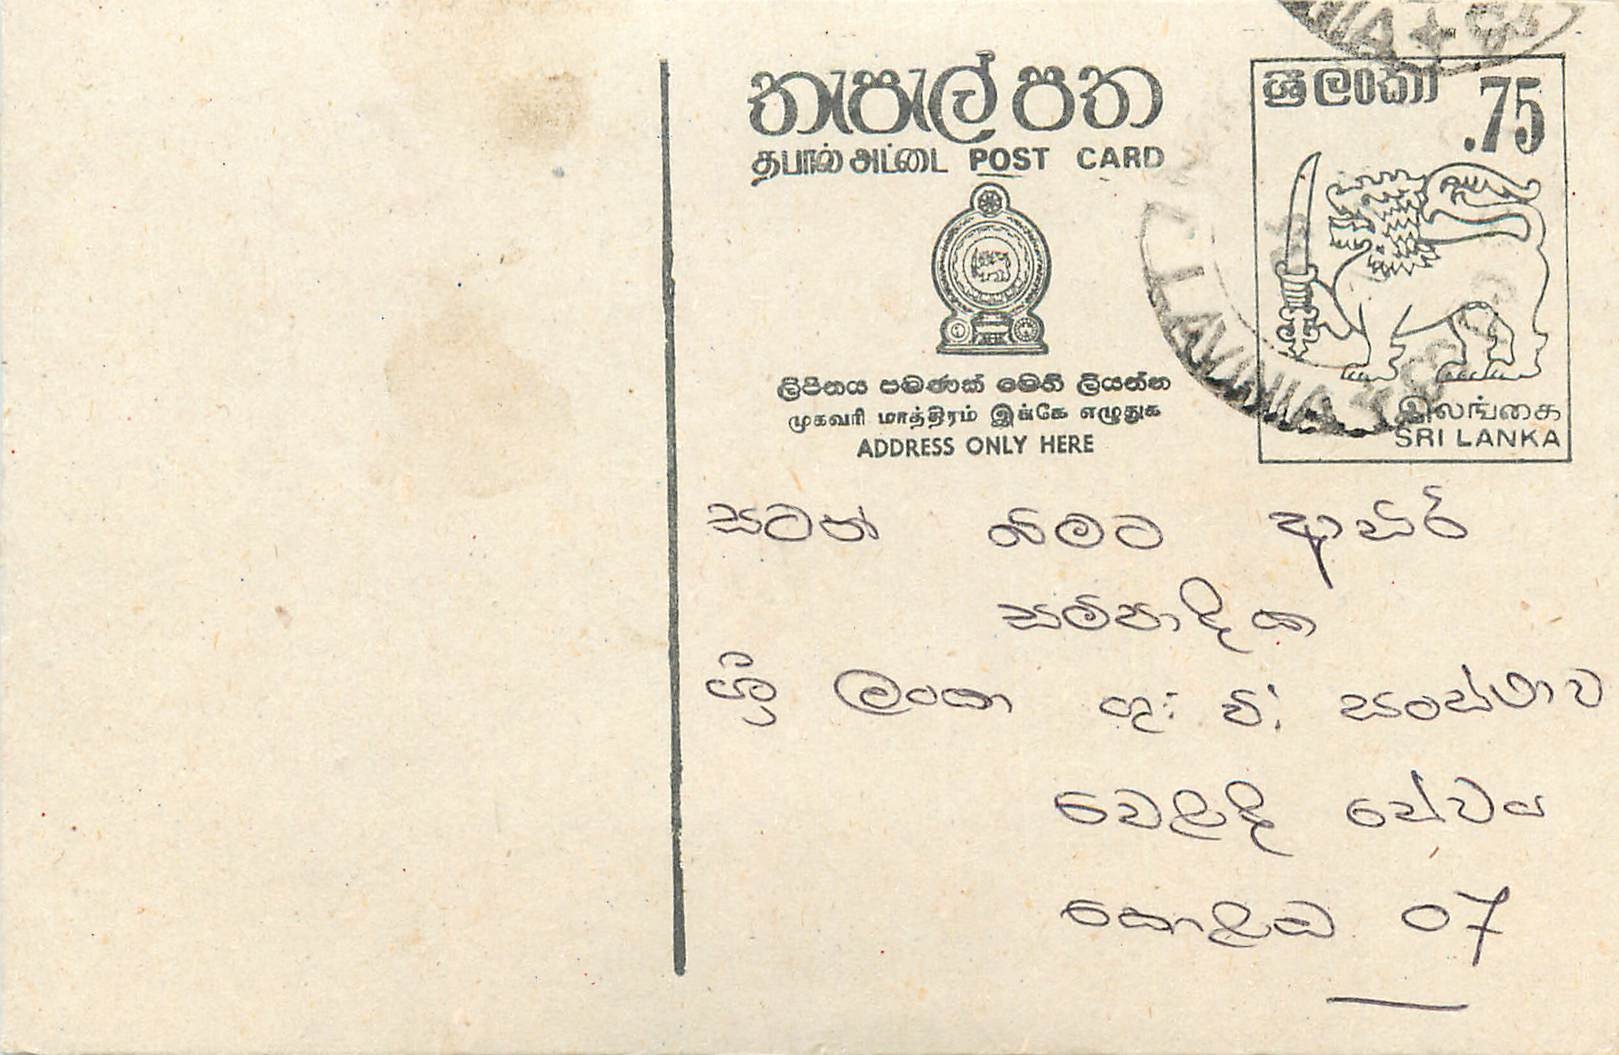 තැපැල් පත
தபால் அட்டை POST CARD
ලිපිනය පමණක් මෙහි ලියන්න
முகவரி மாத்திரம் இங்கே எழுதுக
ADDRESS ONLY HERE
ශ්‍රී ලංකා
.75
இலங்கை
SRI LANKA
LAVINIA
සටන් බිමට ආසිරි
සම්පාදක
ශ්‍රී ලංකා ගු: වි: සංස්ථාව
වෙළඳ සේවය
කොළඹ 07